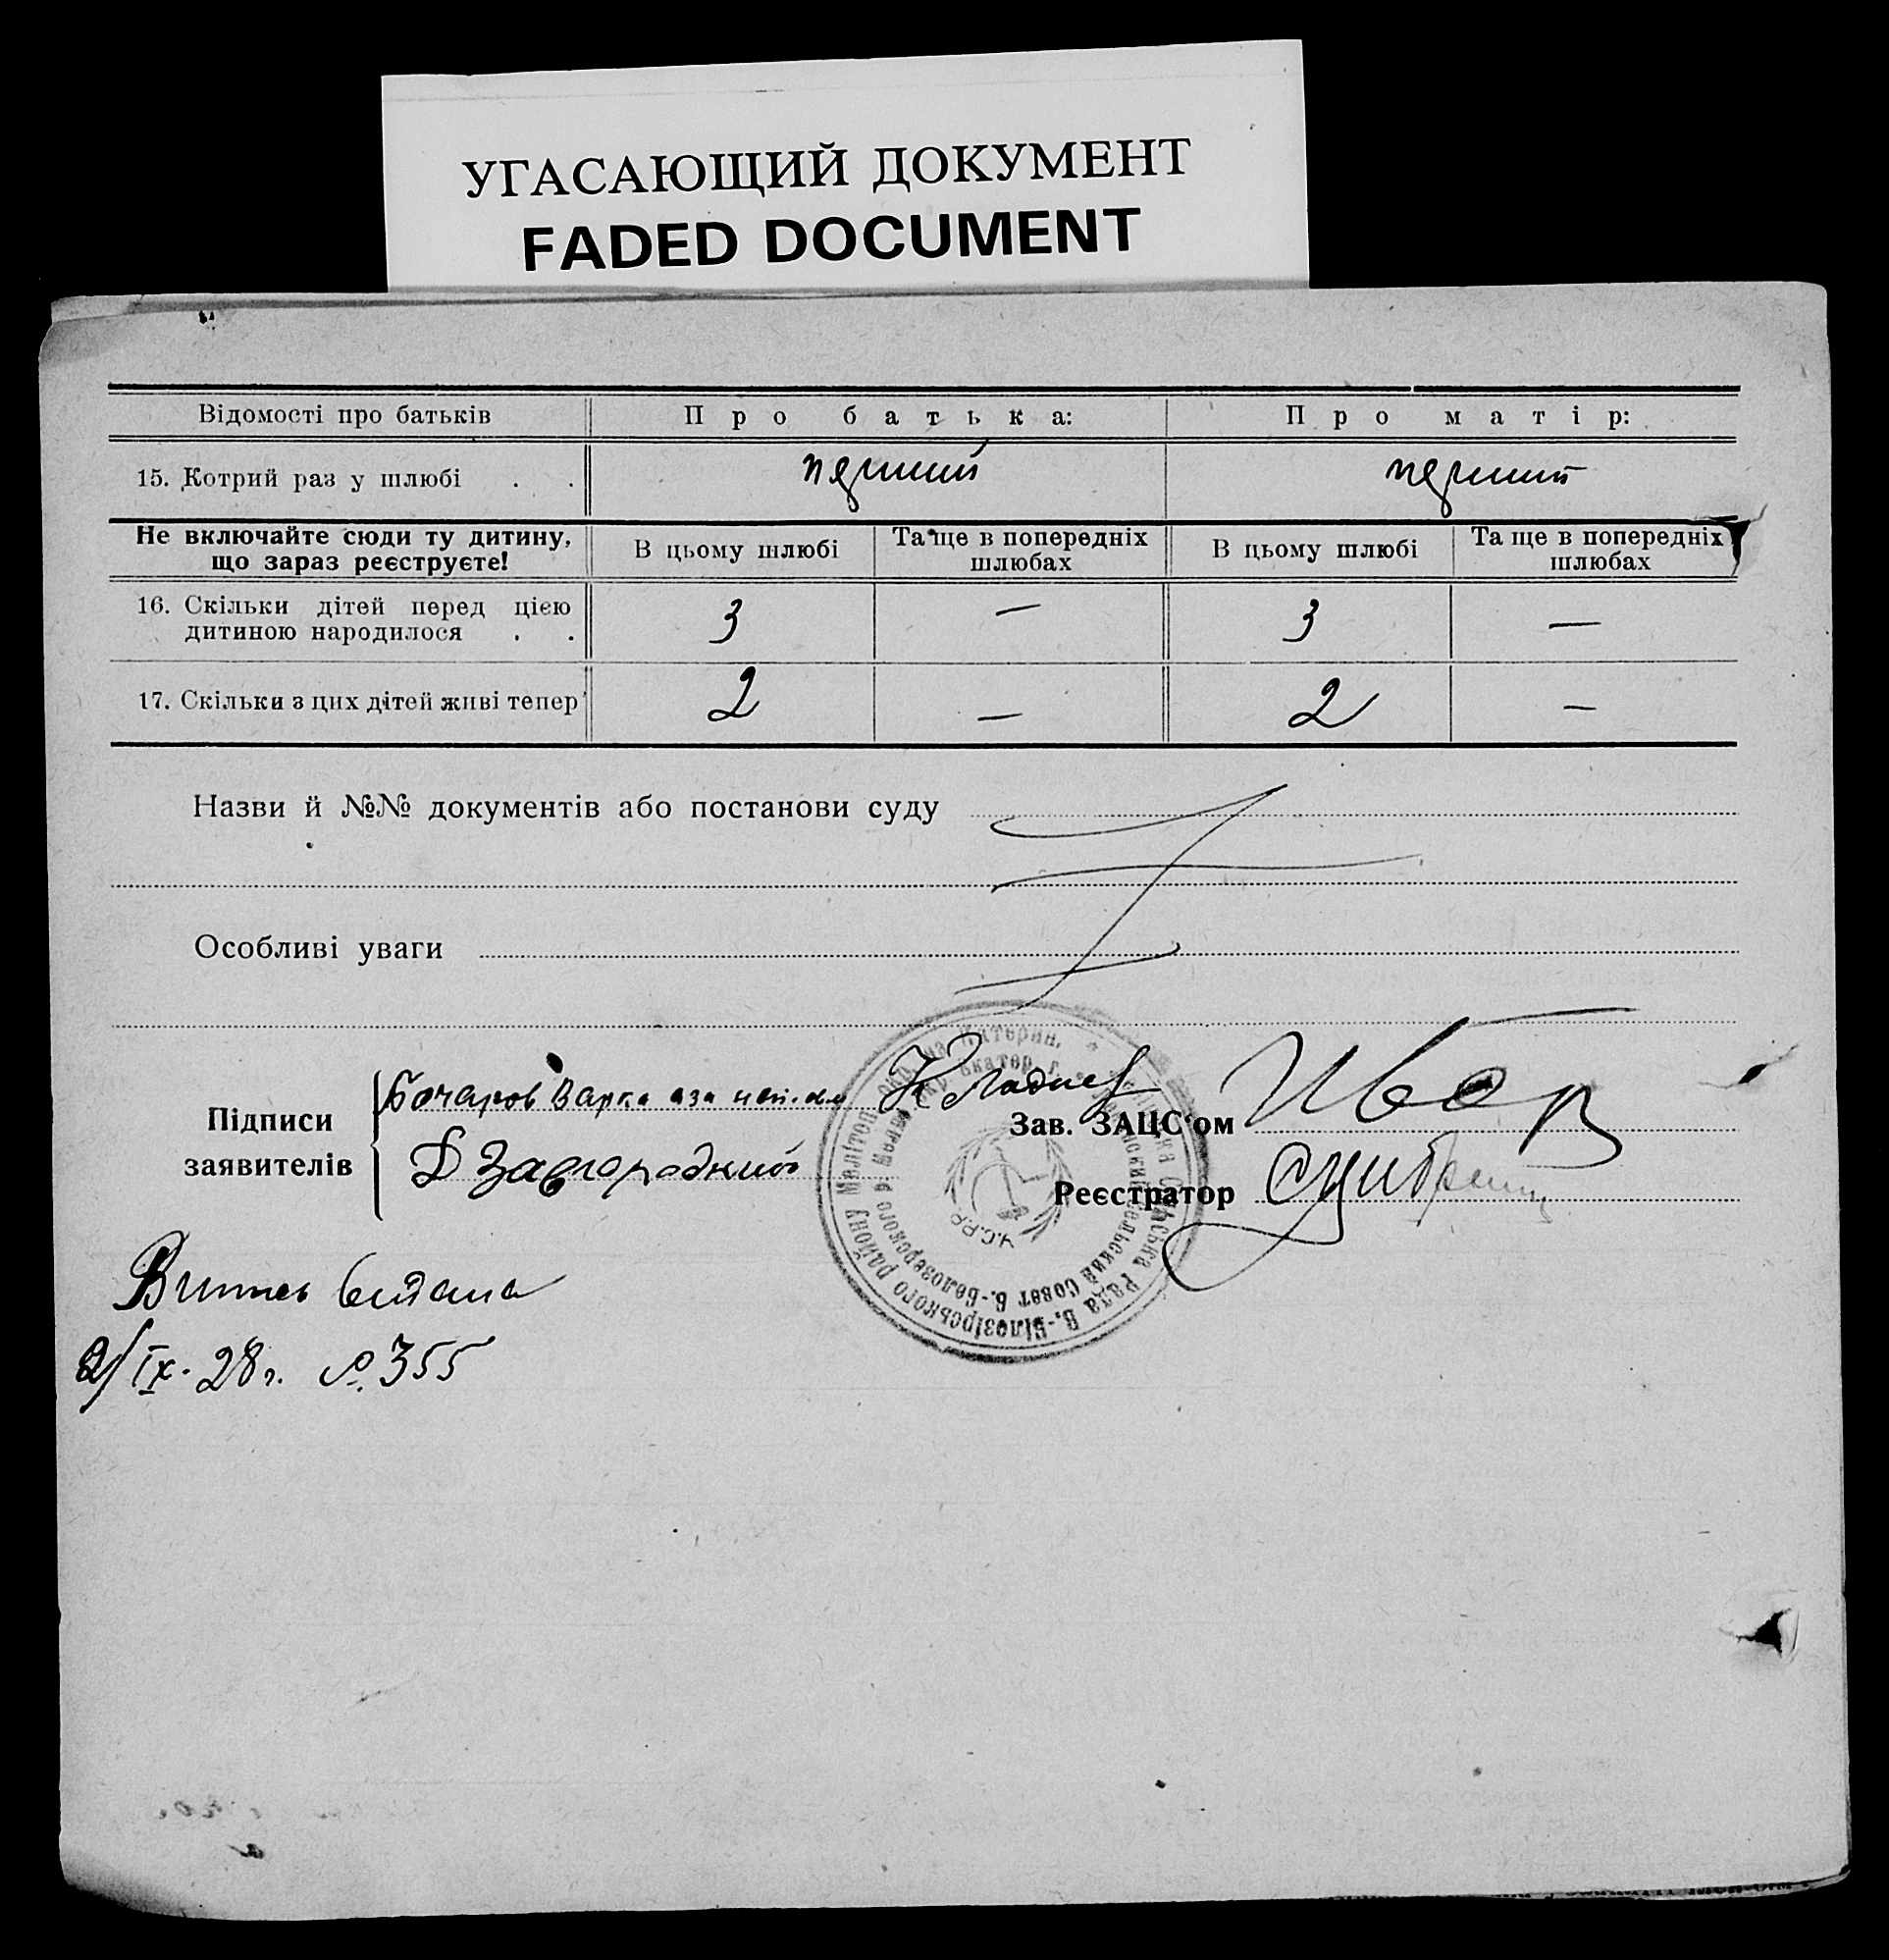 УГАСАЮЩИЙ ДОКУМЕНТ
FADED DOCUMENT
Відомості про батьків
Про батька:
Про матір:
15. Котрий раз у шлюбі . .
перший
перший
Не включайте сюди ту дитину,
що зараз реєструєте!
В цьому шлюбі
Та ще в попередніх
шлюбах
В цьому шлюбі
Та ще в попередніх
шлюбах
16. Скільки дітей перед цією
дитиною народилося . .
3
—
3
—
17. Скільки з цих дітей живі тепер
2
—
2
—
Назви й №№ документів або постанови суду
Особливі уваги
Підписи
заявителів
Бочаров Варка аза
Д Завгородний
Зав. ЗАЦС'ом
Реєстратор
Сільська Рада В.-Білозірського району Меліто
Сельский Совет В.-Белозерского р. Мелит
У.С.Р.Р.
Випись видана
2/IX-28г. №355